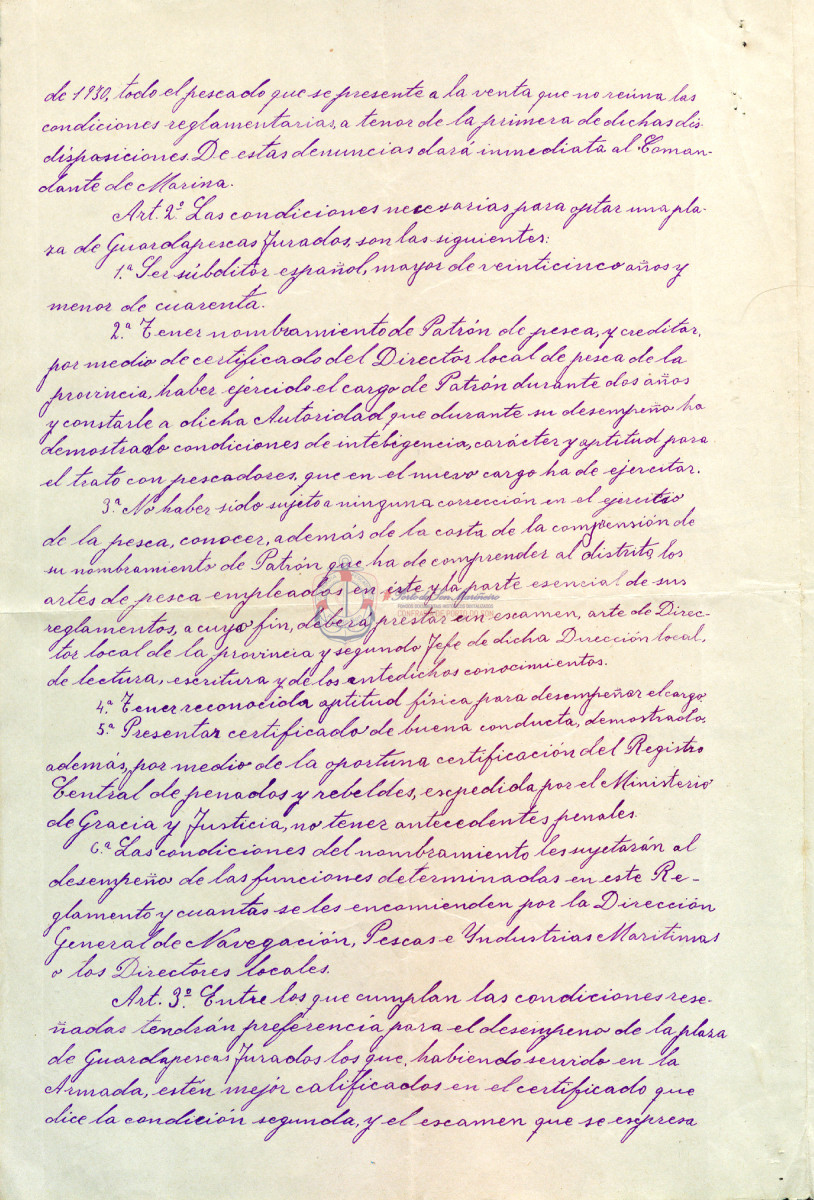 de 1930, todo el pescado que se presente a la venta que no reúna las
condiciones reglamentarias, a tenor de la primera de dichas dis-
disposiciones. De estas denuncias dará inmediata al Coman-
dante de Marina.
Art. 2º Las condiciones necesarias para optar una pla-
za de Guardapescas Jurados, son las siguientes:
1.ª Ser súbditor español, mayor de veinticinco años y
menor de cuarenta.
2.ª Tener nombramiento de Patrón de pesca, y creditar,
por medio de certificado del Director local de pesca de la
provincia, haber ejercido el cargo de Patrón durante dos años
y constarle a dicha Autoridad que durante su desempeño ha
demostrado condiciones de intebigencia, carácter y aptitud para
el trato con pescadores, que en el nuevo cargo ha de ejercitar.
3.ª No haber sido sujeto a ninguna corrección en el ejercitio
de la pesca, conocer, además de la costa de la comprensión de
su nombramiento de Patrón que ha de comprender al distrito, los
artes de pesca empleados en éste y la parte esencial de sus
reglamentos, a cuyo fin, deberá prestar un escamen, arte de Direc-
tor local de la provincia y segundo Jefe de dicha Dirección local,
de lectura, escritura y de los antedichos conocimientos.
4.ª Tener reconocida aptitud física para desempeñar el cargo.
5.ª Presentar certificado de buena conducta, demostrado,
además, por medio de la oportuna certificación del Registro
Central de penados y rebeldes, expedida por el Ministerio
de Gracia y Justicia, no tener antecedentes penales.
6.ª Las condiciones del nombramiento les sujetarán al
desempeño de las funciones determinadas en este Re-
glamento y cuantas se les encamienden por la Dirección
General de Navegación, Pescas e Yndustrias Maritimas
o los Directores locales.
Art. 3º Entre los que cumplan las condiciones rese-
ñadas tendrán preferencia para el desempeno de la plaza
de Guardapescas Jurados los que, habiendo servido en la
Armada, estén mejor calificados en el certificado que
dice la condición segunda, y el escamen que se expresa